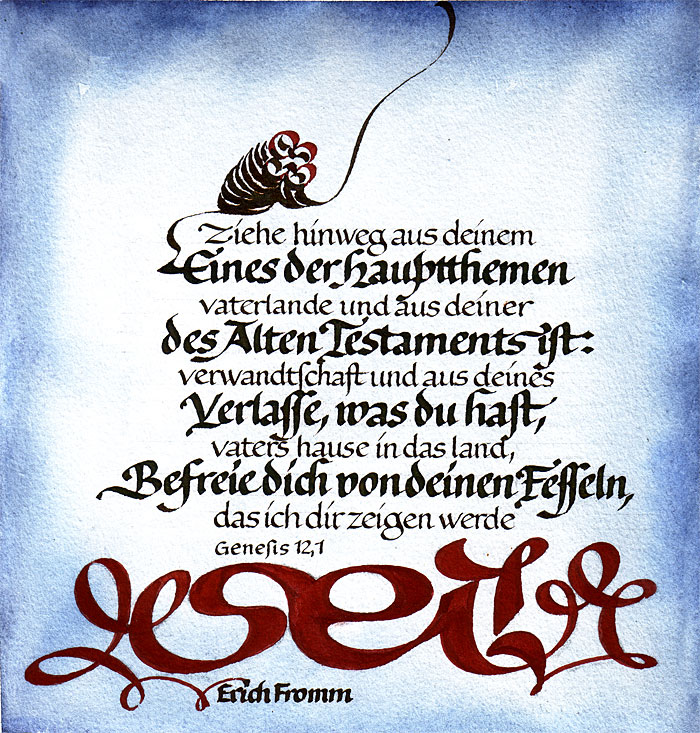 Ziehe hinweg aus deinem
Eines der Hauptthemen
vaterlande und aus deiner
des Alten Testaments ist:
verwandtſchaft und aus deines
Verlaſſe, was du haſt,
vaters hause in das land,
Befreie dich von deinen Feſſeln,
das ich dir zeigen werde
Geneſis 12,1
sei!
Erich Fromm